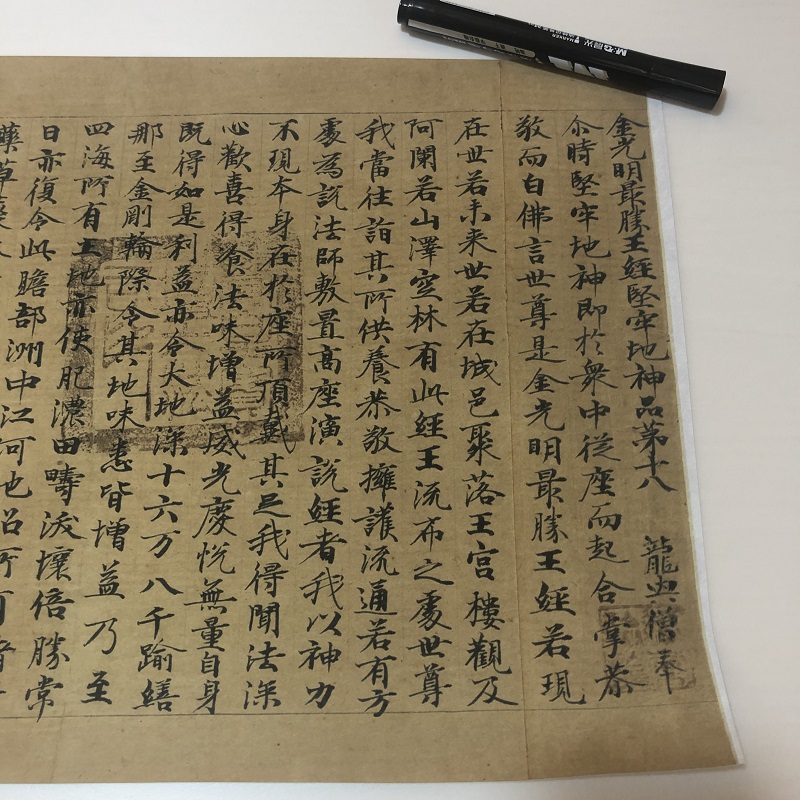 金光明最勝王經堅牢地神品第十八 龍興僧奉
尒時堅牢地神即於衆中從座而起合掌恭
敬而白佛言世尊是金光明最勝王經若現
在世若未来世若在城邑聚落王宮樓觀及
阿蘭若山澤空林有此經王流布之處世尊
我當往詣其所供養恭敬擁護流通若有方
處為說法師敷置高座演說經者我以神力
不現本身在於座所頂戴其足我得聞法深
心歡喜得飡法味增益威光慶悅無量自身
既得如是利益亦令大地深十六万八千踰繕
那至金剛輪際令其地味悉皆增益乃至
四海所有土地亦使肥濃田疇沃壤倍勝常
日亦復令此贍部洲中江河池沼所有諸
藥草叢
M&G晨光
MARKER